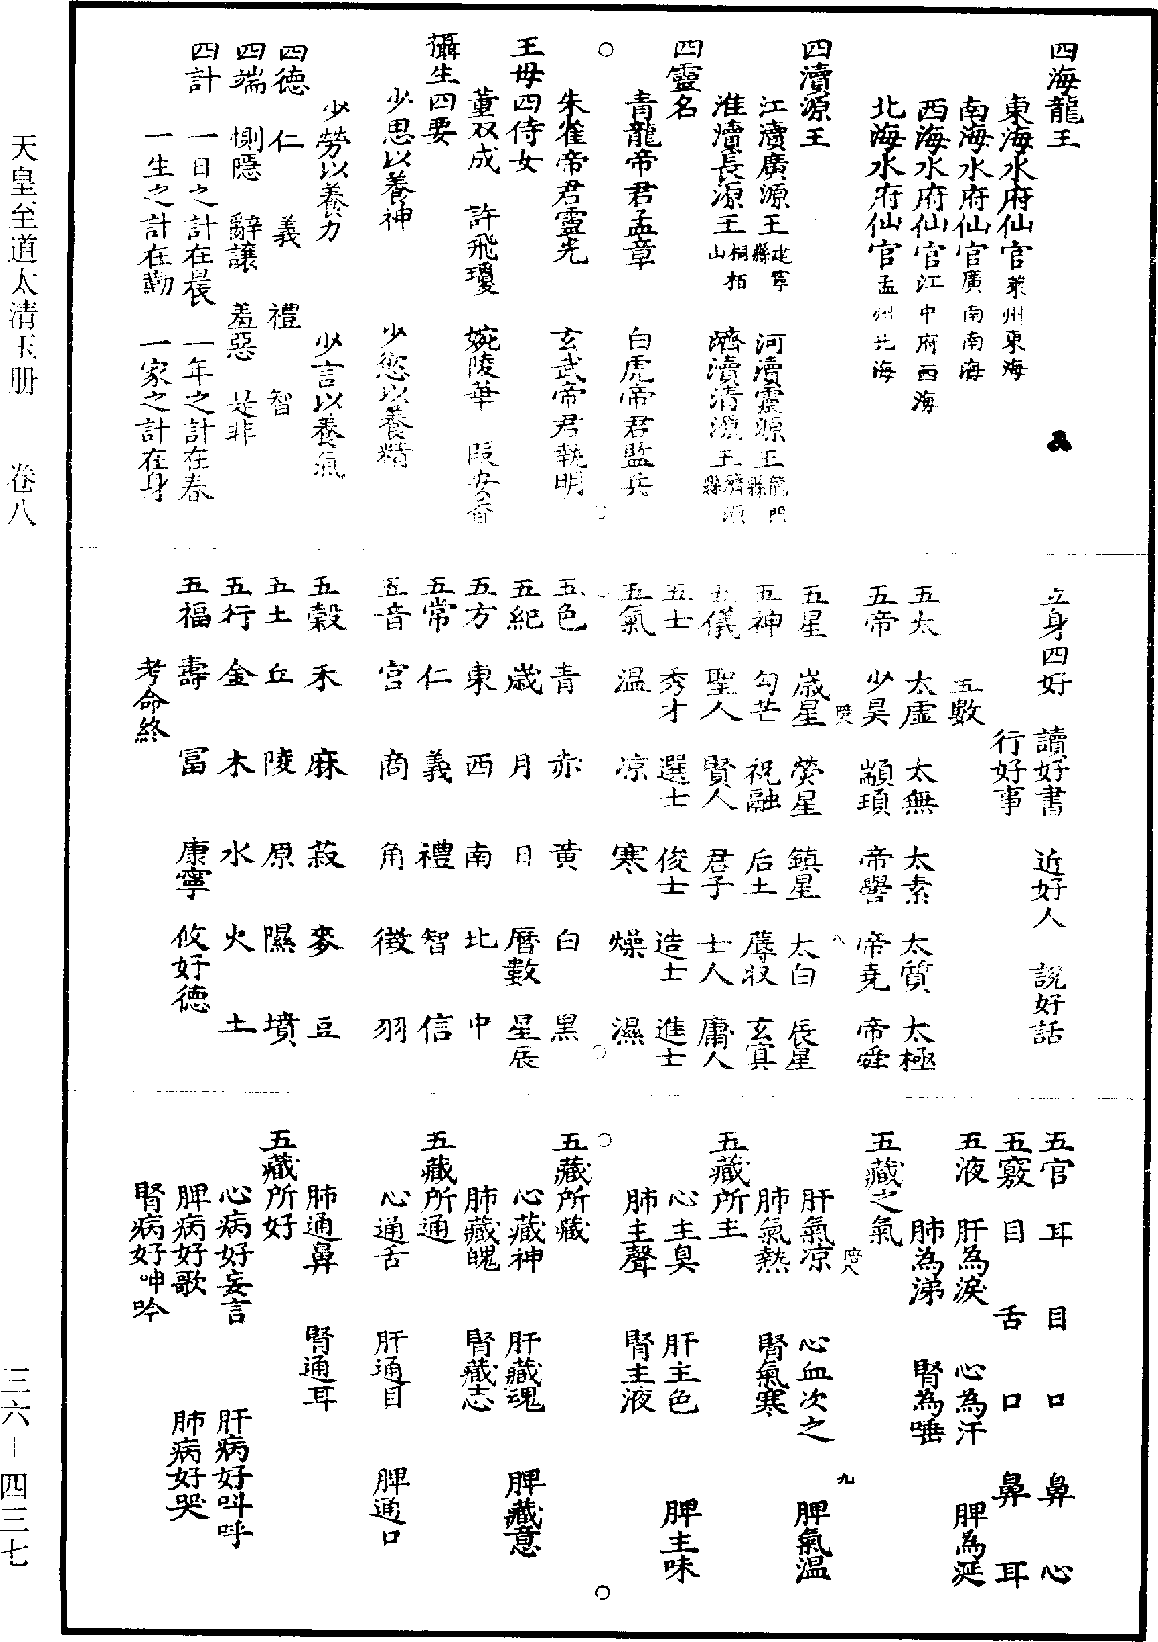 四海龍王
東海水府仙官萊州東海
南海水府仙官廣南南海
西海水府仙官江中府西海
北海水府仙官孟州北海
四瀆源王
江瀆廣源王建寧縣 河瀆靈源王龍門縣
淮瀆長源王桐栢山 濟瀆清源王濟源縣
四靈名
青龍帝君孟章 白虎帝君監兵
朱雀帝君靈光 玄武帝君執明
王母四侍女
董双成 許飛瓊 婉陵華 段安香
攝生四要
少思以養神 少慾以養精
少勞以養力 少言以養氣
四德 仁 義 禮 智
四端 惻隱 辭讓 羞惡 是非
四計 一日之計在晨 一年之計在春
一生之計在勤 一家之計在身
立身四好 讀好書 近好人 說好話
行好事
五數
五太 太虛 太無 太素 太質 太極
五帝 少昊 顓頊 帝嚳 帝堯 帝舜
五星 歲星 熒星 鎮星 太白 辰星
五神 勾芒 祝融 后土 蓐收 玄冥
五儀 聖人 賢人 君子 士人 庸人
五士 秀才 選士 俊士 造士 進士
五氣 温 凉 寒 燥 濕
五色 青 赤 黄 白 黑
五紀 歲 月 日 曆數 星辰
五方 東 西 南 北 中
五常 仁 義 禮 智 信
五音 宮 商 角 徵 羽
五穀 禾 麻 菽 麥 豆
五土 丘 陵 原 隰 墳
五行 金 木 水 火 土
五福 壽 冨 康寧 攸好德
考命終
五官 耳 目 口 鼻 心
五竅 目 舌 口 鼻 耳
五液 肝為淚 心為汗 脾為涎
肺為涕 腎為唾
五藏之氣
肝氣凉 心血次之 脾氣温
肺氣熱 腎氣寒
五藏所主
心主臭 肝主色 脾主味
肺主聲 腎主液
五藏所藏
心藏神 肝藏魂 脾藏意
肺藏魄 腎藏志
五藏所通
心通舌 肝通目 脾通口
肺通鼻 腎通耳
五藏所好
心病好妄言 肝病好叫呼
脾病好歌 肺病好哭
腎病好呻吟
九
天皇至道太清玉册 卷八
三六－四三七